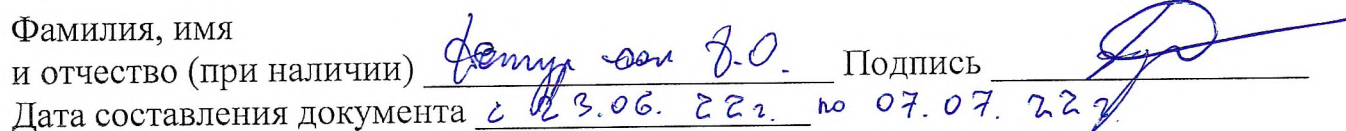 Фамилия, имя
и отчество (при наличии) оол О. Подпись
Дата составления документа с 23.06.22г. по 07.07.22г